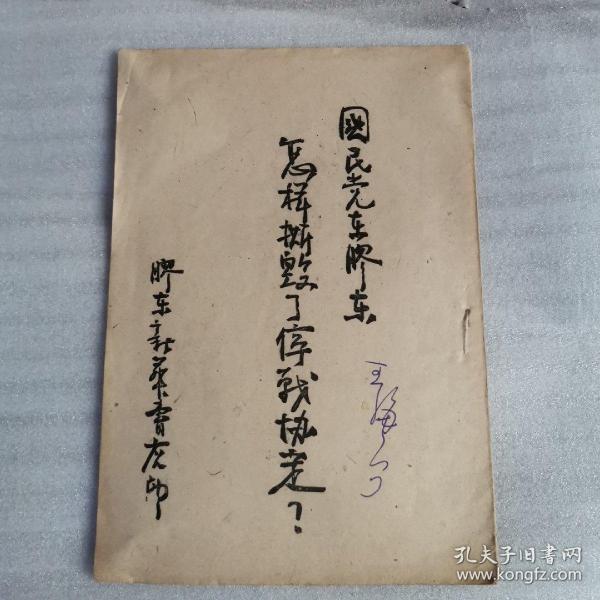 國民党在膠东
怎样撕毁了停战协定？
膠东新华書店印
王
孔夫子旧书网
www.kongfz.com